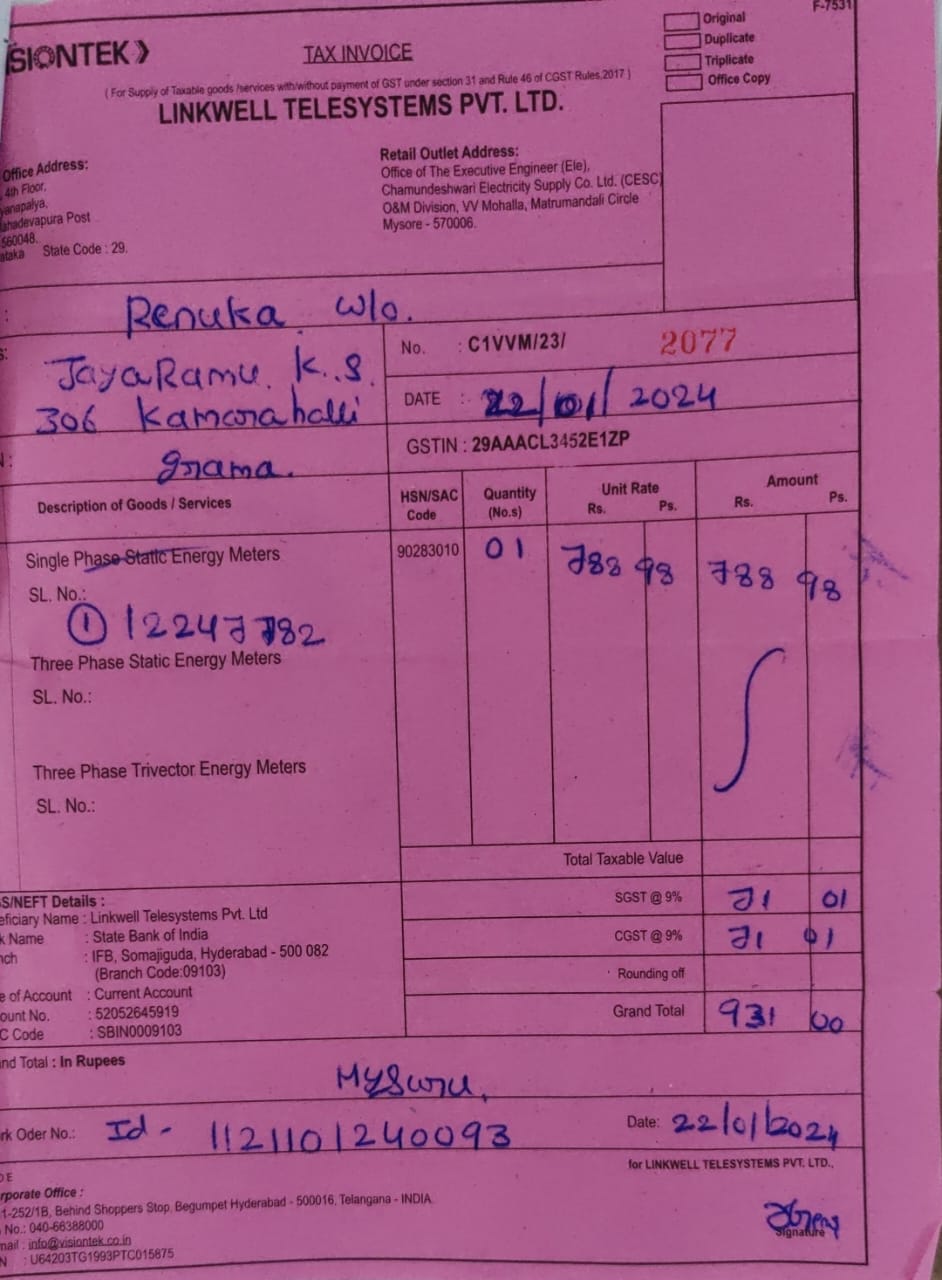 SIONTEK
TAX INVOICE
( For Supply of Taxable goods /services with/without payment of GST under section 31 and Rule 46 of CGST Rules,2017 )
LINKWELL TELESYSTEMS PVT. LTD.
F-7531
Original
Duplicate
Triplicate
Office Copy
Office Address:
4th Floor,
yanapalya,
ahadevapura Post
560048.
ataka State Code : 29.
Retail Outlet Address:
Office of The Executive Engineer (Ele),
Chamundeshwari Electricity Supply Co. Ltd. (CESC)
O&M Division, VV Mohalla, Matrumandali Circle
Mysore - 570006.
: Renuka w/o.
s: JayaRamu. K.S.
306 Kamarahalli
grama.
No. : C1VVM/23/ 2077
DATE : 22/01/2024
GSTIN : 29AAACL3452E1ZP
Description of Goods / Services HSN/SAC Code Quantity (No.s) Unit Rate Rs. Ps. Amount Rs. Ps.
Single Phase Static Energy Meters 90283010 01 788 98 788 98
SL. No.:
1 12247782
Three Phase Static Energy Meters
SL. No.:
Three Phase Trivector Energy Meters
SL. No.:
Total Taxable Value
SGST @ 9% 71 01
CGST @ 9% 71 01
Rounding off
Grand Total 931 00
S/NEFT Details :
eficiary Name : Linkwell Telesystems Pvt. Ltd
k Name : State Bank of India
nch : IFB, Somajiguda, Hyderabad - 500 082
(Branch Code:09103)
e of Account : Current Account
ount No. : 52052645919
C Code : SBIN0009103
nd Total : In Rupees
Mysuru,
rk Oder No.: Id - 1121101240093
Date: 22/01/2024
for LINKWELL TELESYSTEMS PVT. LTD.,
Signature
DE
rporate Office :
1-252/1B, Behind Shoppers Stop, Begumpet Hyderabad - 500016, Telangana - INDIA
No.: 040-66388000
mail : info@visiontek.co.in
N : U64203TG1993PTC015875